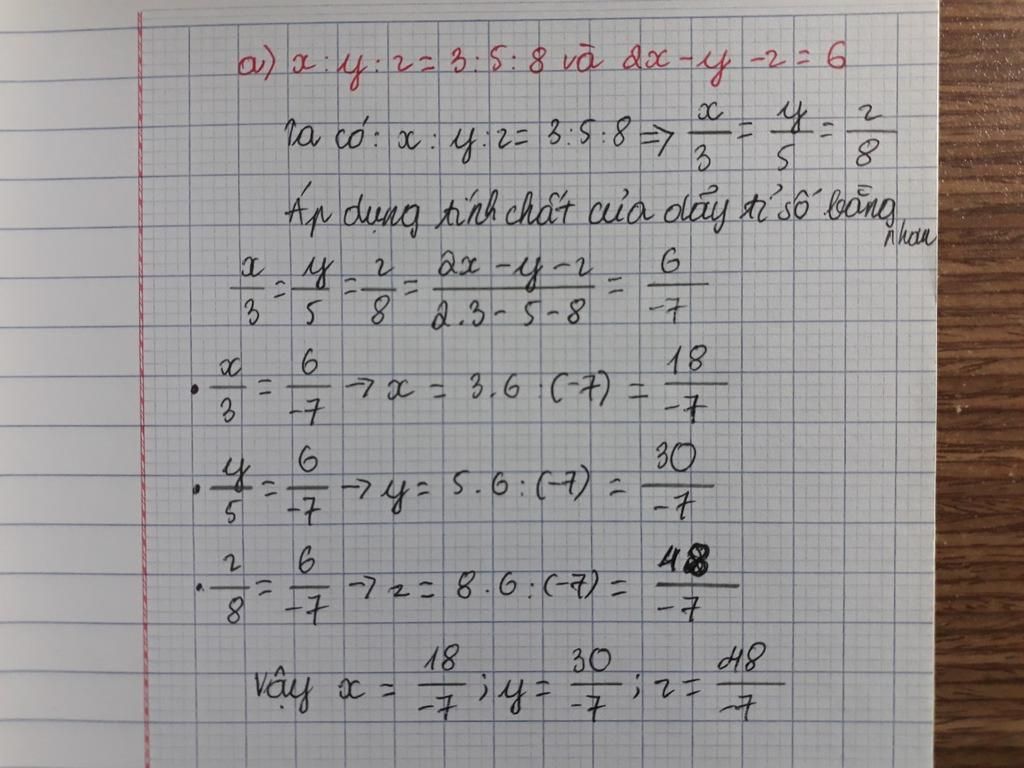 a) x : y : z = 3 : 5 : 8 và 2x - y - z = 6
Ta có: x : y : z = 3 : 5 : 8 => x/3 = y/5 = z/8
Áp dụng tính chất của dãy tỉ số bằng nhau
x/3 = y/5 = z/8 = (2x - y - z)/(2.3 - 5 - 8) = 6/-7
• x/3 = 6/-7 → x = 3.6 : (-7) = 18/-7
• y/5 = 6/-7 → y = 5.6 : (-7) = 30/-7
• z/8 = 6/-7 → z = 8.6 : (-7) = 48/-7
Vậy x = 18/-7 ; y = 30/-7 ; z = 48/-7